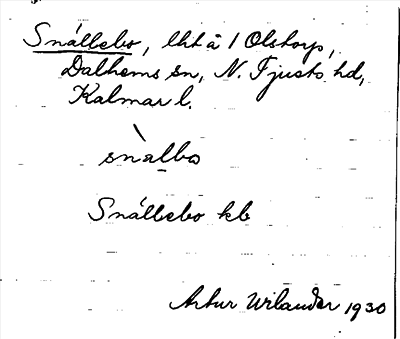 Snällebo, lht å 1 Olstorp,
Dalhems sn, N. Tjusts hd,
Kalmar l.
snalbo
Snällebo kb
Artur Wilander 1930